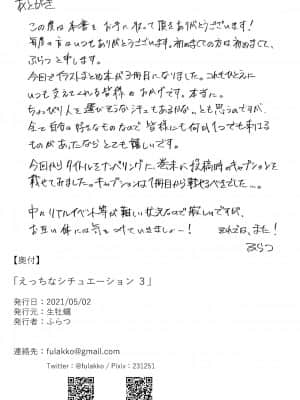 あとがき
この度は本書をお手に取って頂きありがとうございます!
毎度の方はいつもありがとうございます。初めましての方は初めまして、
ふらっと申します。
今回でイラストまとめ本が3冊目になりました。これもひとえに
いつも支えてくれる皆様のおかげです。本当に。
ちょっぴり人を選びそうなシチュもあるかな、とも思うのですが、
全て自分の好きなものなので皆様にも何か1つでも刺さる
ものがあったならとても嬉しいです。
今回からタイトルをナンバリングに、巻末に投稿時のキャプションを
載せてみました。キャプションは1冊目から載せるべきでした…。
中々リアルイベント等が難しい状況なので寂しいですが、
お互い体には気をつけていきましょー! それでは、また!
ふらつ
【奥付】
「えっちなシチュエーション 3」
発行日:2021/05/02
発行元:生牡蠣
発行者:ふらつ
連絡先:fulakko@gmail.com
Twitter:@fulakko / Pixiv:231251